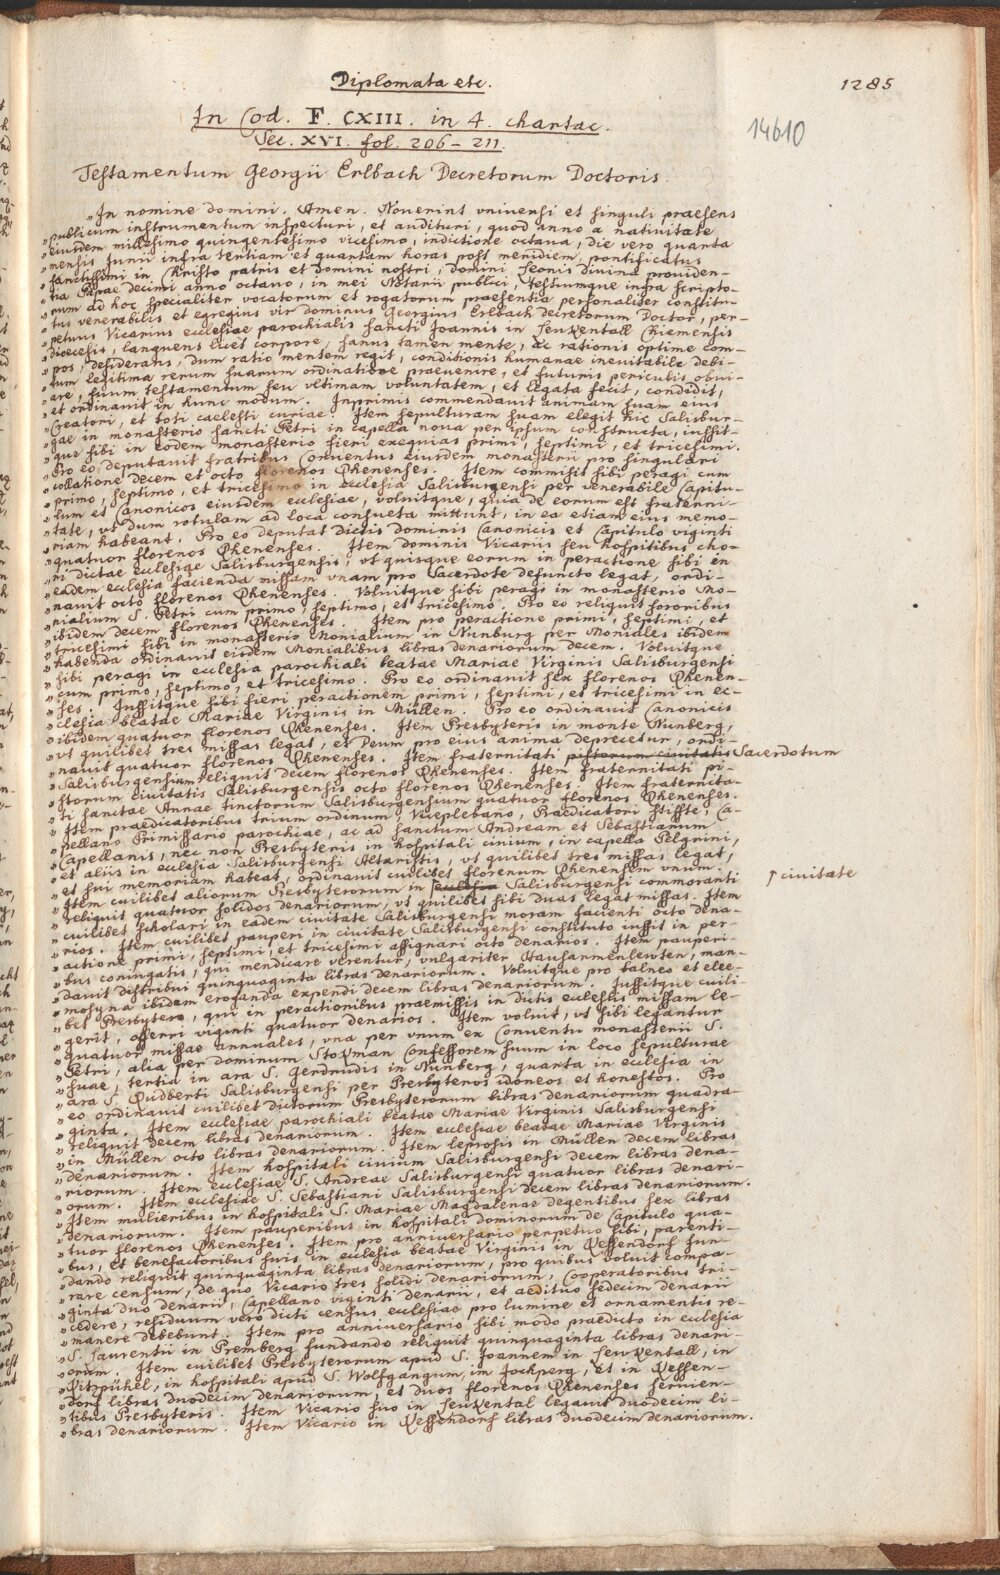 Diplomata etc.
1285
In Cod. F. CXIII. in 4. chartac.
14610
Sec. XVI. fol. 206–211.
Testamentum Georgii Erlbach Decretorum Doctoris.
„In nomine domini. Amen. Noverint vniuersi et singuli praesens
„publicum instrumentum inspecturi, et audituri, quod anno a natiuitate
„eiusdem millesimo quingentesimo vicesimo, indictione octaua, die vero quarta
„mensis Junii infra tertiam et quartam horas post meridiem, pontificatus
„sanctissimi in Christo patris et domini nostri, domini Leonis diuina prouiden-
„tia Papae decimi anno octauo, in mei Notarii publici, testiumque infra scripto-
„rum ad hoc specialiter vocatorum et rogatorum praesentia personaliter constitu-
„tus venerabilis et egregius vir dominus Georgius Erlbach decretorum Doctor, per-
„petuus Vicarius ecclesiae parochialis sancti Joannis in Leukentall Chiemensis
„dioecesis, languens licet corpore, sanus tamen mente, ac rationis optime com-
„pos, desiderans, dum ratio mentem regit, conditionis humanae ineuitabile debi-
„tum legitima rerum suarum ordinatione praeuenire, et futuris periculis obui-
„are, suum testamentum seu vltimam voluntatem, et legata fecit, condidit,
„et ordinauit in hunc modum. Inprimis commendauit animam suam eius
„Creatori, et toti caelesti curiae. Item sepulturam suam elegit hic Salisbur-
„gae in monasterio sancti Petri in capella noua per ipsum constructa, iussit-
„que sibi in eodem monasterio fieri exequias primi, septimi, et tricesimi.
„Pro eo deputauit fratribus Conuentus eiusdem monasterii pro singulari
„collatione decem et octo florenos Rhenenses. Item commisit sibi peragi cum
„primo, septimo, et tricesimo in ecclesia Salisburgensi per venerabile Capitu-
„lum et Canonicos eiusdem ecclesiae, voluitque, quia de eorum est fraterni-
„tate, vt dum rotulam ad loca consueta mittunt, in ea etiam eius memo-
„riam habeant. Pro eo deputat dictis dominis Canonicis et Capitulo viginti
„quatuor florenos Rhenenses. Item dominis Vicariis seu hospitibus cho-
„ri dictae ecclesiae Salisburgensis, vt quisque eorum in peractione sibi in
„eadem ecclesia facienda missam vnam pro Sacerdote defuncto legat, ordi-
„nauit octo florenos Rhenenses. Voluitque sibi peragi in monasterio Mo-
„nialium S. Petri cum primo, septimo, et tricesimo. Pro eo reliquit sororibus
„ibidem decem florenos Rhenenses. Item pro peractione primi, septimi, et
„tricesimi sibi in monasterio Monialium in Nunburg per Moniales ibidem
„habenda ordinauit eisdem Monialibus libras denariorum decem. Voluitque
„sibi peragi in ecclesia parochiali beatae Mariae Virginis Salisburgensi
„cum primo, septimo, et tricesimo. Pro eo ordinauit sex florenos Rhenen-
„ses. Iussitque sibi fieri peractionem primi, septimi, et tricesimi in ec-
„clesia beatae Mariae Virginis in Müllen. Pro eo ordinauit Canonicis
„ibidem quatuor florenos Rhenenses. Item Presbyteris in monte Nunberg,
„vt quilibet tres missas legat, et Deum pro eius anima deprecetur, ordi-
„nauit quatuor florenos Rhenenses. Item fraternitati pistorum ciuitatis Sacerdotum
„Salisburgensium reliquit decem florenos Rhenenses. Item fraternitati pi-
„storum ciuitatis Salisburgensis octo florenos Rhenenses. Item fraternita-
„ti sanctae Annae tinctorum Salisburgensium quatuor florenos Rhenenses.
„Item praedicatoribus trium ordinum, Viceplebano, Praedicatori stiffte, Ca-
„pellano Primissario parochiae, ac ad sanctum Andream et Sebastianum
„Capellanis, nec non Presbyteris in hospitali ciuium, in capella Pelgrini,
„et aliis in ecclesia Salisburgensi Altaristis, vt quilibet tres missas legat,
„et sui memoriam habeat, ordinauit cuilibet florenum Rhenensem vnum.
„Item cuilibet aliorum Presbyterorum in ecclesia Salisburgensi commoranti ciuitate
„reliquit quatuor solidos denariorum, vt quilibet sibi duas legat missas. Item
„cuilibet scholari in eadem ciuitate Salisburgensi moram facienti octo dena-
„rios. Item cuilibet pauperi in ciuitate Salisburgensi constituto iussit in per-
„actione primi, septimi, et tricesimi assignari octo denarios. Item pauperi-
„bus coniugatis, qui mendicare verentur, vulgariter Hausarmenlewten, man-
„dauit distribui quinquaginta libras denariorum. Voluitque pro balneo et elee-
„mosyna ibidem eroganda expendi decem libras denariorum. Iussitque cuili-
„bet Presbytero, qui in peractionibus praemissis in dictis ecclesiis missam le-
„gerit, offerri viginti quatuor denarios. Item voluit, vt sibi legantur
„quatuor missae annuales, vna per vnum ex Conuentu monasterii S.
„Petri, alia per dominum Stokman Confessorem suum in loco sepulturae
„suae, tertia in ara S. Gerdrudis in Nunberg, quarta in ecclesia in
„ara S. Rudberti Salisburgensi per Presbyteros idoneos et honestos. Pro
„eo ordinauit cuilibet dictorum Presbyterorum libras denariorum quadra-
„ginta. Item ecclesiae parochiali beatae Mariae Virginis Salisburgensi
„reliquit decem libras denariorum. Item ecclesiae beatae Mariae Virginis
„in Müllen octo libras denariorum. Item leprosis in Müllen decem libras
„denariorum. Item hospitali ciuium Salisburgensi decem libras dena-
„riorum. Item ecclesiae S. Andreae Salisburgensi quatuor libras denari-
„orum. Item ecclesiae S. Sebastiani Salisburgensi decem libras denariorum.
„Item mulieribus in hospitali S. Mariae Magdalenae degentibus sex libras
„denariorum. Item pauperibus in hospitali dominorum de Capitulo qua-
„tuor florenos Rhenenses. Item pro anniuersario perpetuo sibi, parenti-
„bus, et benefactoribus suis in ecclesia beatae Virginis in Keffendorf fun-
„dando reliquit quinquaginta libras denariorum, pro quibus voluit compa-
„rare censum, de quo Vicario tres solidi denariorum, Cooperatoribus tri-
„ginta duo denarii, Capellano viginti denarii, et aedituo sedecim denarii
„cedere, residuum vero dicti census ecclesiae pro lumine et ornamentis re-
„manere debebunt. Item pro anniuersario sibi modo praedicto in ecclesia
„S. Laurentii in Premberg fundando reliquit quinquaginta libras denari-
„orum. Item cuilibet Presbyterorum apud S. Joannem in Lewkentall, in
„Kitzpühel, in hospitali apud S. Wolfgangum, in Jochperg, et in Keffen-
„dorf libras duodecim denariorum, et duos florenos Rhenenses seruien-
„tibus Presbyteris. Item Vicario suo in Leukental legauit duodecim li-
„bras denariorum. Item Vicario in Keffendorf libras duodecim denariorum.